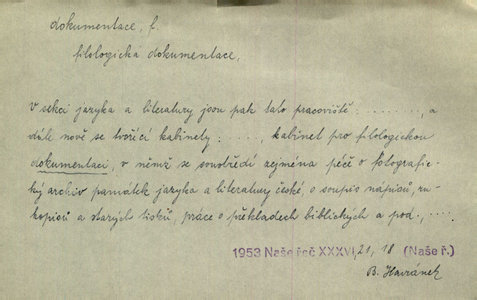 dokumentace, f.
filologická dokumentace.
V sekci jazyka a literatury jsou pak tato pracoviště: ........., a
dále nově se tvořící kabinety: ....., kabinet pro filologickou
dokumentaci, v němž se soustředí zejména péče o fotografic-
ký archiv památek jazyka a literatury české, o soupis nápisů, ru-
kopisů a starých tisků, práce o překladech biblických a pod., ....
1953 Naše řeč XXXVI, 21, 18 (Naše ř.)
B. Havránek